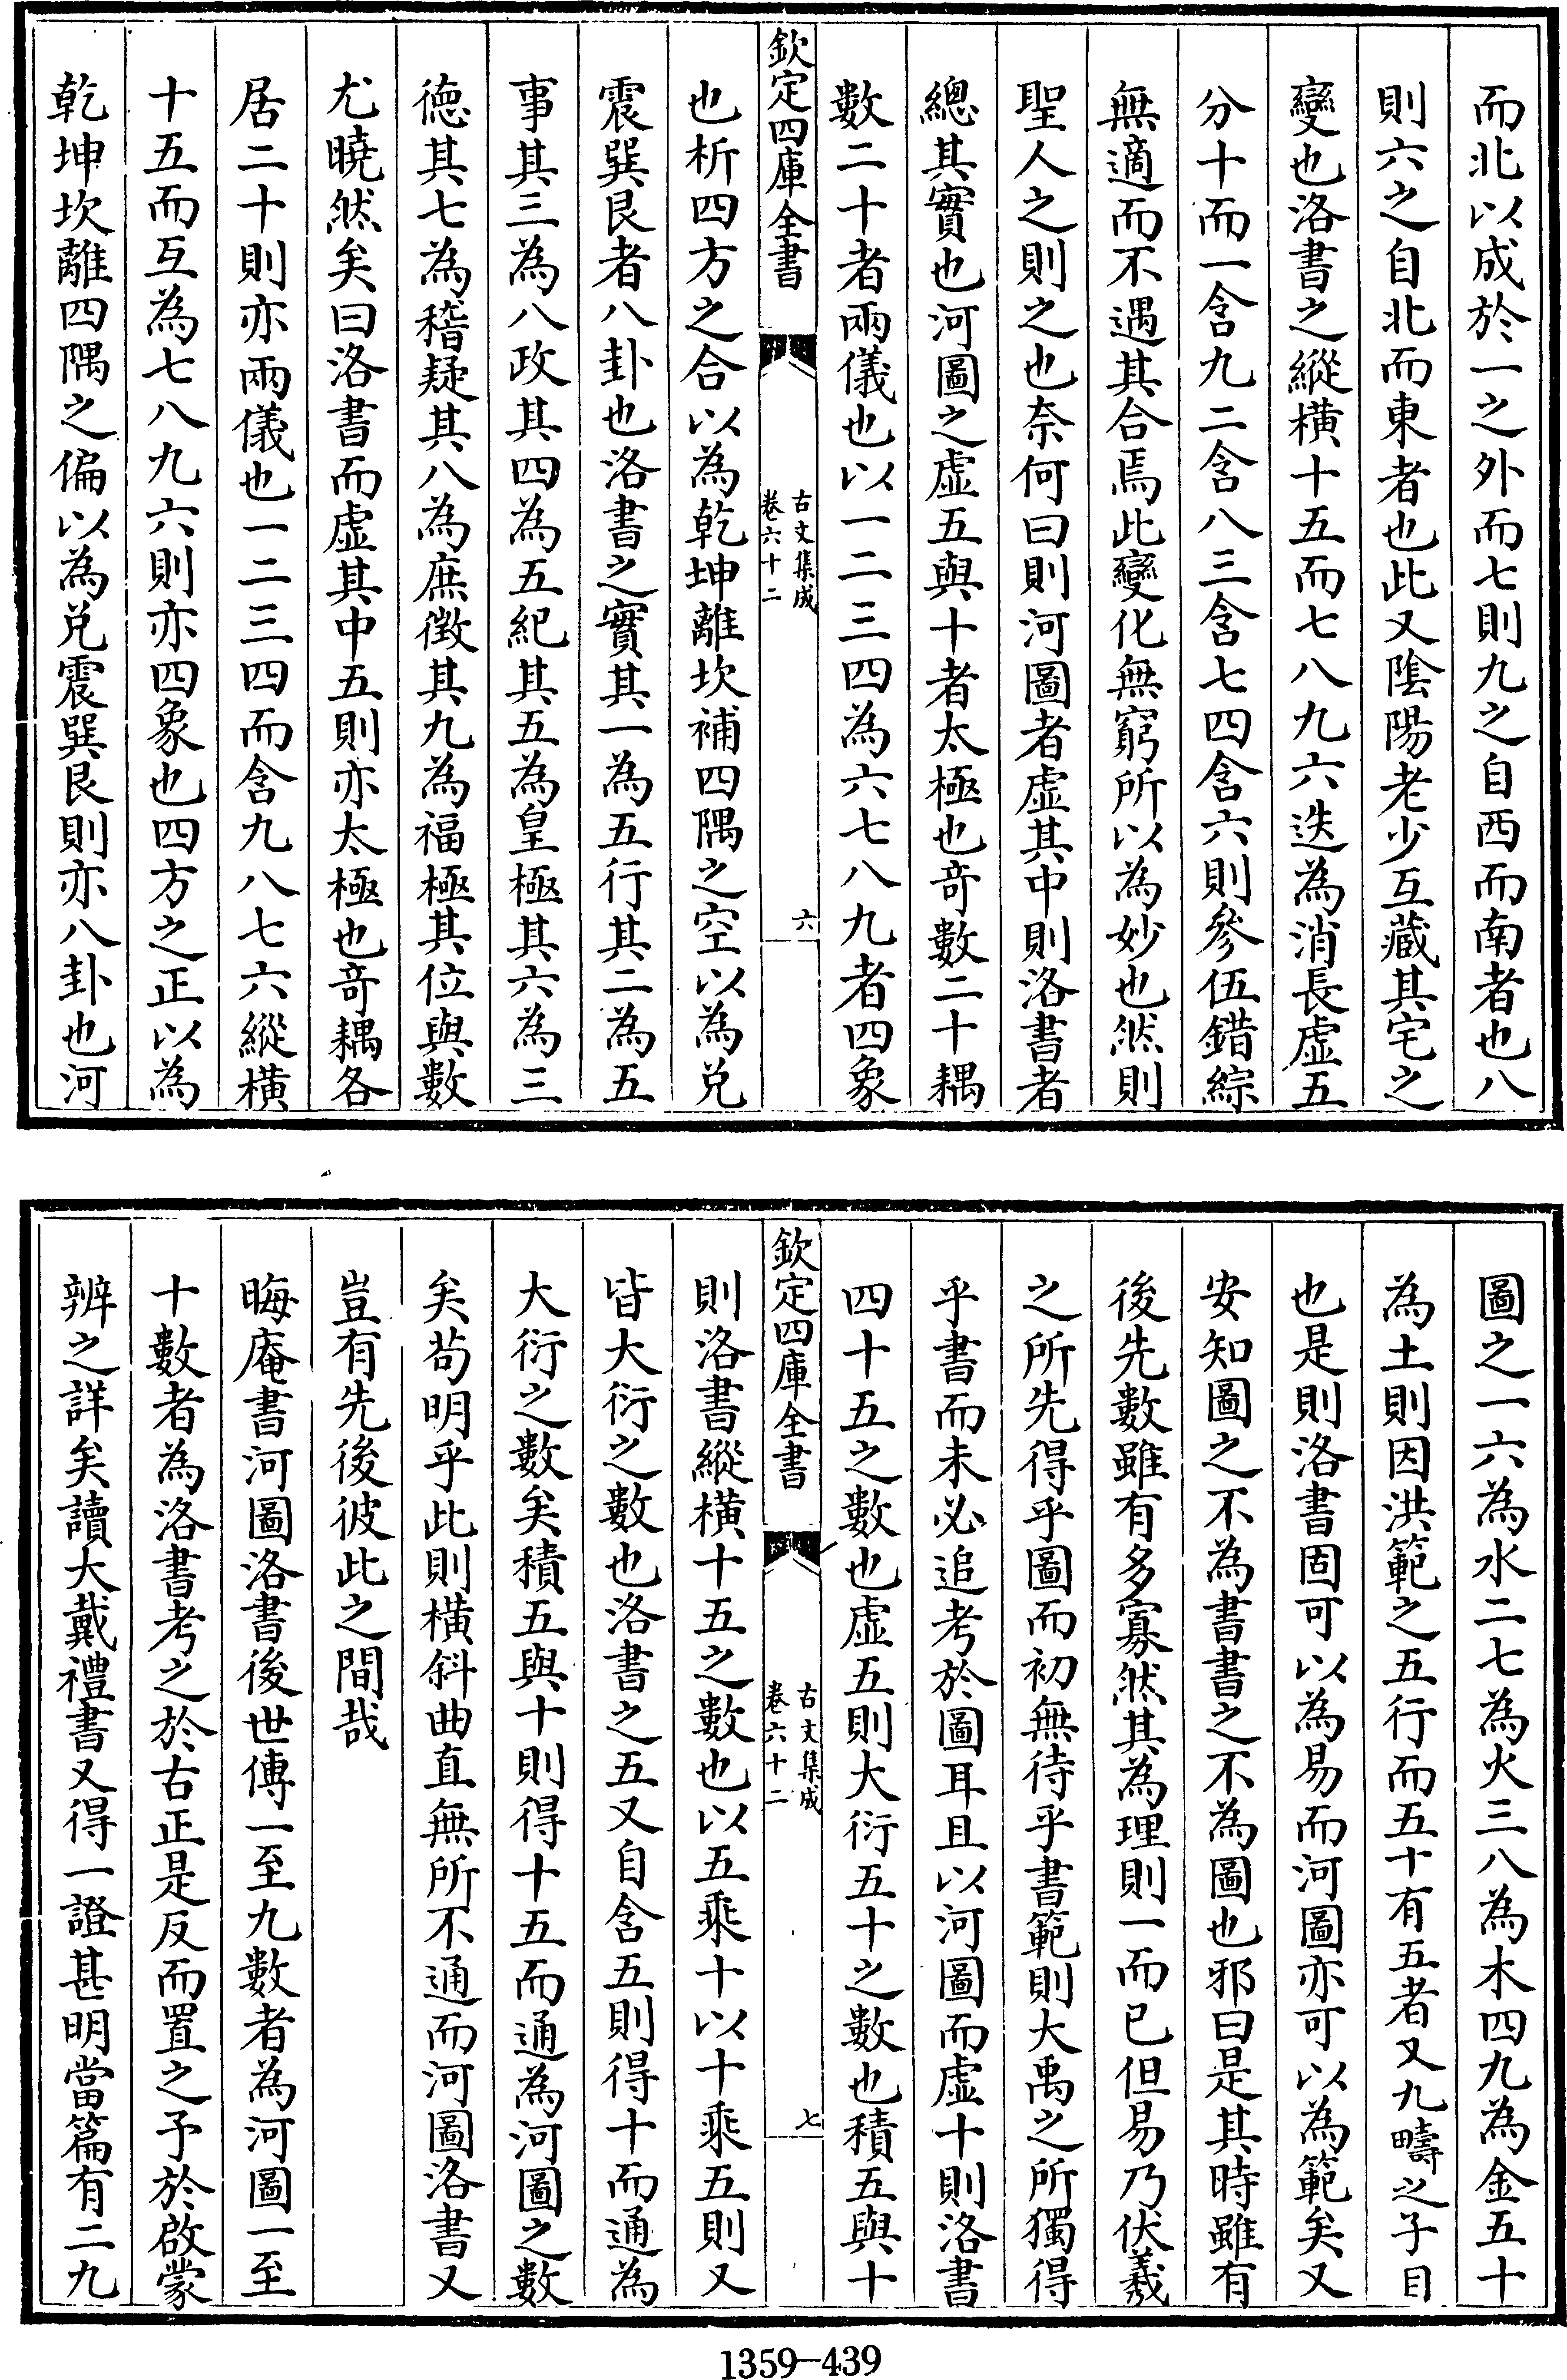 而北以成於一之外而七則九之自西而南者也八
則六之自北而東者也此又陰陽老少互藏其宅之
變也洛書之縱橫十五而七八九六迭為消長虛五
分十而一含九二含八三含七四含六則參伍錯綜
無適而不遇其合焉此變化無窮所以為妙也然則
聖人之則之也奈何曰則河圖者虛其中則洛書者
總其實也河圖之虛五與十者太極也竒數二十耦
數二十者兩儀也以一二三四為六七八九者四象
欽定四庫全書
古文集成
卷六十二
六
也析四方之合以為乾坤離坎補四隅之空以為兌
震巽艮者八卦也洛書之實其一為五行其二為五
事其三為八政其四為五紀其五為皇極其六為三
德其七為稽疑其八為庶徵其九為福極其位與數
尤曉然矣曰洛書而虛其中五則亦太極也竒耦各
居二十則亦兩儀也一二三四而含九八七六縱橫
十五而互為七八九六則亦四象也四方之正以為
乾坤坎離四隅之偏以為兌震巽艮則亦八卦也河
圖之一六為水二七為火三八為木四九為金五十
為土則因洪範之五行而五十有五者又九疇之子目
也是則洛書固可以為易而河圖亦可以為範矣又
安知圖之不為書書之不為圖也邪曰是其時雖有
後先數雖有多寡然其為理則一而已但易乃伏羲
之所先得乎圖而初無待乎書範則大禹之所獨得
乎書而未必追考於圖耳且以河圖而虛十則洛書
四十五之數也虛五則大衍五十之數也積五與十
欽定四庫全書
古文集成
卷六十二
七
則洛書縱橫十五之數也以五乘十以十乘五則又
皆大衍之數也洛書之五又自含五則得十而通為
大衍之數矣積五與十則得十五而通為河圖之數
矣苟明乎此則橫斜曲直無所不通而河圖洛書又
豈有先後彼此之間哉
晦庵書河圖洛書後世傳一至九數者為河圖一至
十數者為洛書考之於古正是反而置之予於啟蒙
辨之詳矣讀大戴禮書又得一證甚明當篇有二九
1359-439